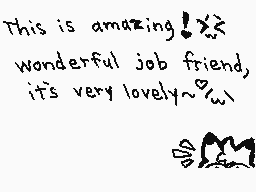 This is amazing! >:<
wonderful job friend,
it's very lovely~♡/w\